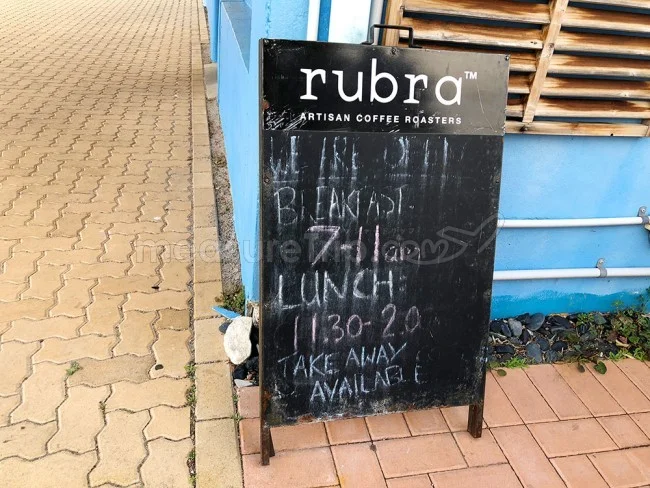 rubra™
ARTISAN COFFEE ROASTERS
WE ARE OPEN
BREAKFAST
7-11am
LUNCH
11.30-2.0
TAKE AWAY
AVAILABLE
measureTrip.com